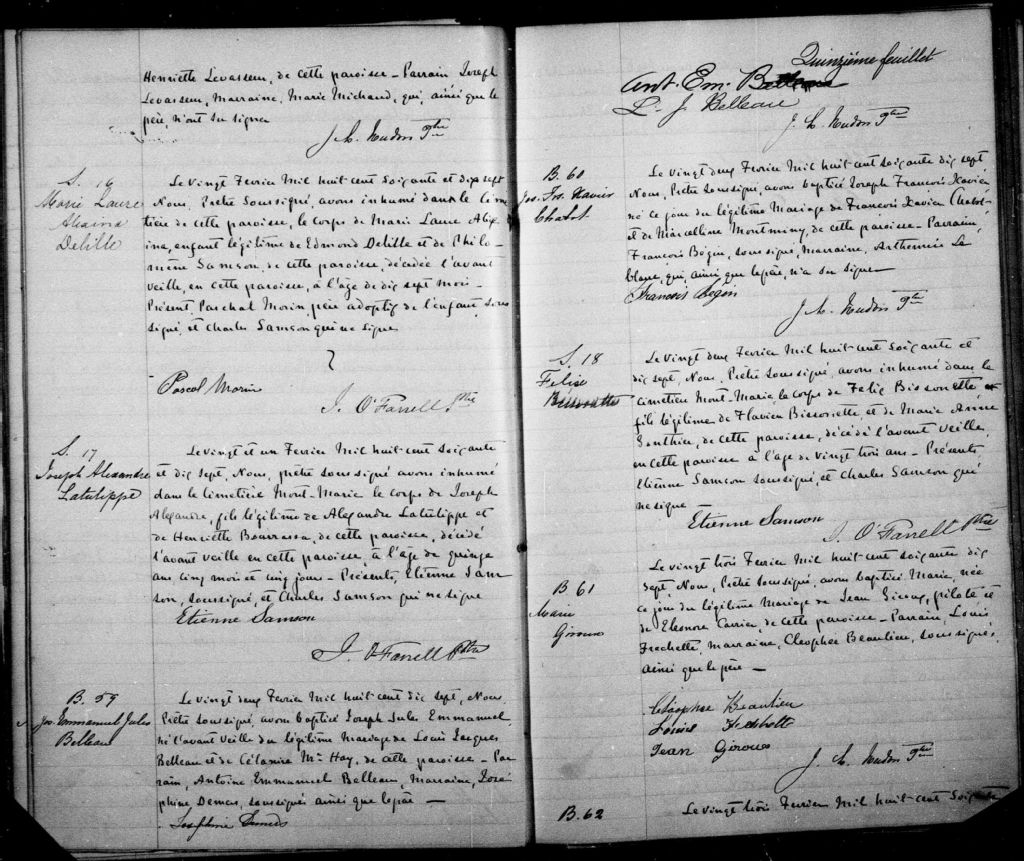 Henriette Levasseur, de cette paroisse – Parrain Joseph
Levasseur, Marraine, Marie Michaud, qui, ainsi que le
père, n'ont su signer
J. H.
S. 16
Marie Laure
Delille
Le vingt Fevrier Mil huit cent Soixante et dix sept
Nous, Prêtre Soussigné, avons inhumé dans le Cime
tière de cette paroisse, le corps de Marie Laure Alex
ina, enfant légitime de Edmond Delille et de Philo-
mène Samson, de cette paroisse, décédée l'avant
veille, en cette paroisse, à l'âge de dix sept mois –
Présent Paschal Morin, père adoptif de l'enfant sous
signé, et Charles Samson qui ne signe
Pascal Morin
J. O'Farrell Ptre
S. 17
Joseph Alexandre
Latulippe
Le vingt et un Fevrier Mil huit-cent soixante
et dix sept, Nous, prêtre soussigné avons inhumé
dans le Cimetière Mont-Marie le corps de Joseph
Alexandre, fils légitime de Alexandre Latulippe et
de Henriette Bourrassa, de cette paroisse, décédé
l'avant veille en cette paroisse, à l'âge de quinze
ans cinq mois et cinq jours – Présents, Etienne Sam
son, soussigné, et Charles Samson qui ne signe
Etienne Samson
J. O'Farrell Ptre
B. 59
Jos. Emmanuel Jules
Belleau
Le vingt deux Fevrier Mil huit-cent dix sept, Nous
Prêtre soussigné, avons baptisé Joseph Jules Emmanuel,
né l'avant veille du légitime Mariage de Louis Jacques
Belleau et de Célanire Mc Hay, de cette paroisse – Par
rain, Antoine Emmanuel Belleau, Marraine, José-
phine Demers, soussignés ainsi que le père –
Josephine Demers
Quinzième feuillet
Ant. Em. Belleau
L. J. Belleau
J. H.
B. 60
Jos. Frs. Xavier
Chabot
Le vingt deux Fevrier Mil huit cent soixante dix sept
Nous, Prêtre soussigné, avons baptisé Joseph François Xavier,
né ce jour du légitime Mariage de François Xavier Chabot
et de Marcelline Montminy, de cette paroisse – Parrain,
François Bégin, soussigné, Marraine, Arthemise Le
blanc, qui, ainsi que le père, n'a su signer
Francois Begin
J. H.
S. 18
Felix
Bissonette
Le vingt deux Fevrier Mil huit-cent Soixante et
dix sept, Nous, Prêtre soussigné, avons inhumé dans le
Cimetière Mont-Marie, le corps de Felix Bissonette
fils légitime de Flavien Bissonette et de Marie Anne
Gonthier, de cette paroisse, décédé l'avant veille,
en cette paroisse à l'âge de vingt trois ans – Présents,
Etienne Samson soussigné, et Charles Samson qui
ne signe
Etienne Samson
J. O'Farrell Ptre
B 61
Marie
Giroux
Le vingt trois Fevrier Mil huit-cent soixante dix
sept, Nous, Prêtre soussigné, avons baptisé Marie, née
ce jour du légitime Mariage de Jean Giroux, pilote et
de Eleonore Carrier, de cette paroisse – Parrain, Louis
Frechette, Marraine, Cleophee Beaulieu, soussignés,
ainsi que le père –
Cléophée Beaulieu
Louis Frechette
Jean Giroux
J. H.
B. 62
Le vingt trois Fevrier Mil huit-cent Soixante